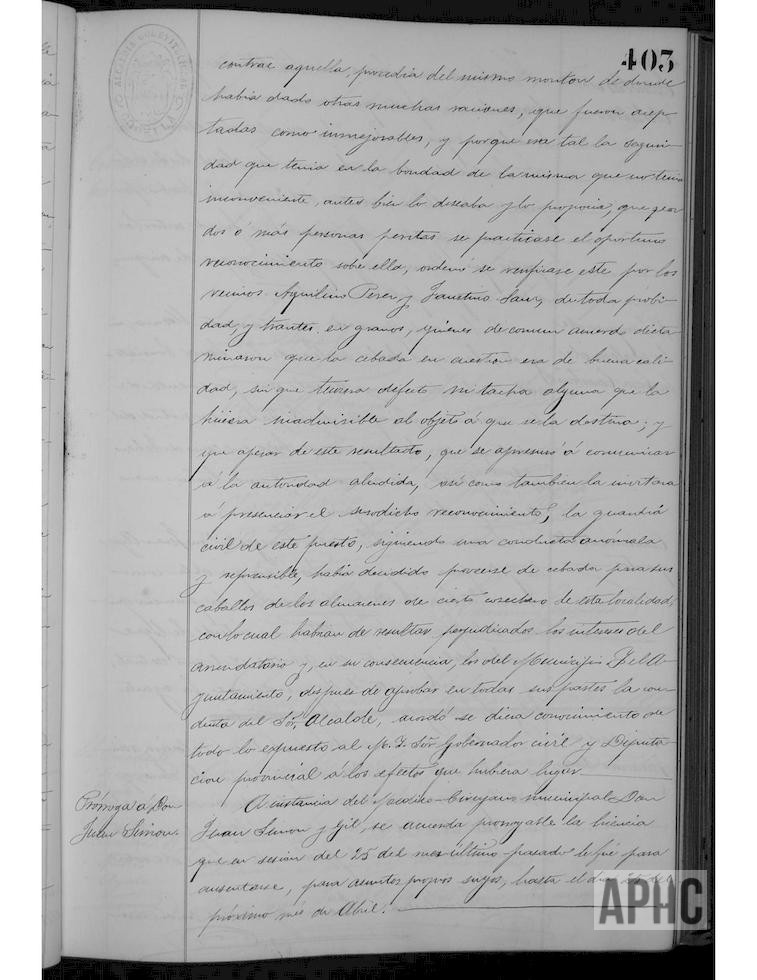 403
contrae aquella, procedia del mismo monton de donde
habia dado otras muchas raciones, que fueron acep-
tadas como inmejorables, y porque era tal la seguri-
dad que tenia en la bondad de la misma que no tenia
inconveniente, antes bien lo deseaba y lo proponia, que por
dos ó más personas peritas se practicase el oportuno
reconocimiento sobre ella, ordenó se verificase este por los
vecinos Aquilino Perez y Faustino Sanz, de toda probi-
dad, y tratantes en granos, quienes de comun acuerdo dicta-
minaron que la cebada en cuestion era de buena cali-
dad, sin que tuviera defecto ni tacha alguna que la
hiciera inadmisible al objeto á que se la destina; y
que apesar de este resultado, que se apresuró á comunicar
á la autoridad aludida, así como tambien la invitara
á presenciar el susodicho reconocimiento, la guardia
civil de este puesto, siguiendo una conducta anómala
y reprensible, habia decidido proveerse de cebada para sus
caballos de los almacenes de cierto cosechero de esta localidad,
con lo cual habrian de resultar perjudicados los intereses del
arrendatario y, en su consecuencia, los del Municipio. El A-
yuntamiento, despues de aprobar en todas sus partes la con-
ducta del Sr. Alcalde, acordó se diera conocimiento de
todo lo expuesto al M. I. Sr. Gobernador civil y Diputa-
cion provincial á los efectos que hubiera lugar.
Prórroga á Don
Juan Simon.
A instancia del Medico-Cirujano municipal Don
Juan Simon y Gil, se acuerda prorrogarle la licencia
que en sesion del 25 del mes último pasado le fué para
ausentarse, para asuntos propios suyos, hasta el dia del
próximo mes de Abril.
APHC